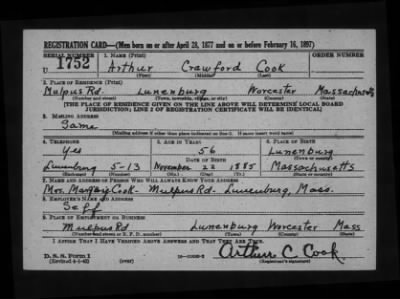 REGISTRATION CARD—(Men born on or after April 28, 1877 and on or before February 16, 1897)
SERIAL NUMBER 1. NAME (Print) ORDER NUMBER
U 1752 Arthur Crawford Cook
(First) (Middle) (Last)
2. PLACE OF RESIDENCE (Print)
Mulpus Rd. Lunenburg Worcester Massachusetts
(Number and street) (Town, township, village, or city) (County) (State)
[THE PLACE OF RESIDENCE GIVEN ON THE LINE ABOVE WILL DETERMINE LOCAL BOARD
JURISDICTION; LINE 2 OF REGISTRATION CERTIFICATE WILL BE IDENTICAL]
3. MAILING ADDRESS
Same
[Mailing address if other than place indicated on line 2. If same insert word same]
4. TELEPHONE 5. AGE IN YEARS 6. PLACE OF BIRTH
Yes 56 Lunenburg
DATE OF BIRTH (Town or county)
Lunenburg 5-13 November 22 1885 Massachusetts
(Exchange) (Number) (Mo.) (Day) (Yr.) (State or country)
7. NAME AND ADDRESS OF PERSON WHO WILL ALWAYS KNOW YOUR ADDRESS
Mrs. Margarie Cook - Mulpus Rd - Lunenburg, Mass.
8. EMPLOYER'S NAME AND ADDRESS
Self
9. PLACE OF EMPLOYMENT OR BUSINESS
Mulpus Rd Lunenburg Worcester Mass
(Number and street or R. F. D. number) (Town) (County) (State)
I AFFIRM THAT I HAVE VERIFIED ABOVE ANSWERS AND THAT THEY ARE TRUE.
D. S. S. Form 1 Arthur C. Cook
(Revised 4-1-42) (over) (Registrant's signature)